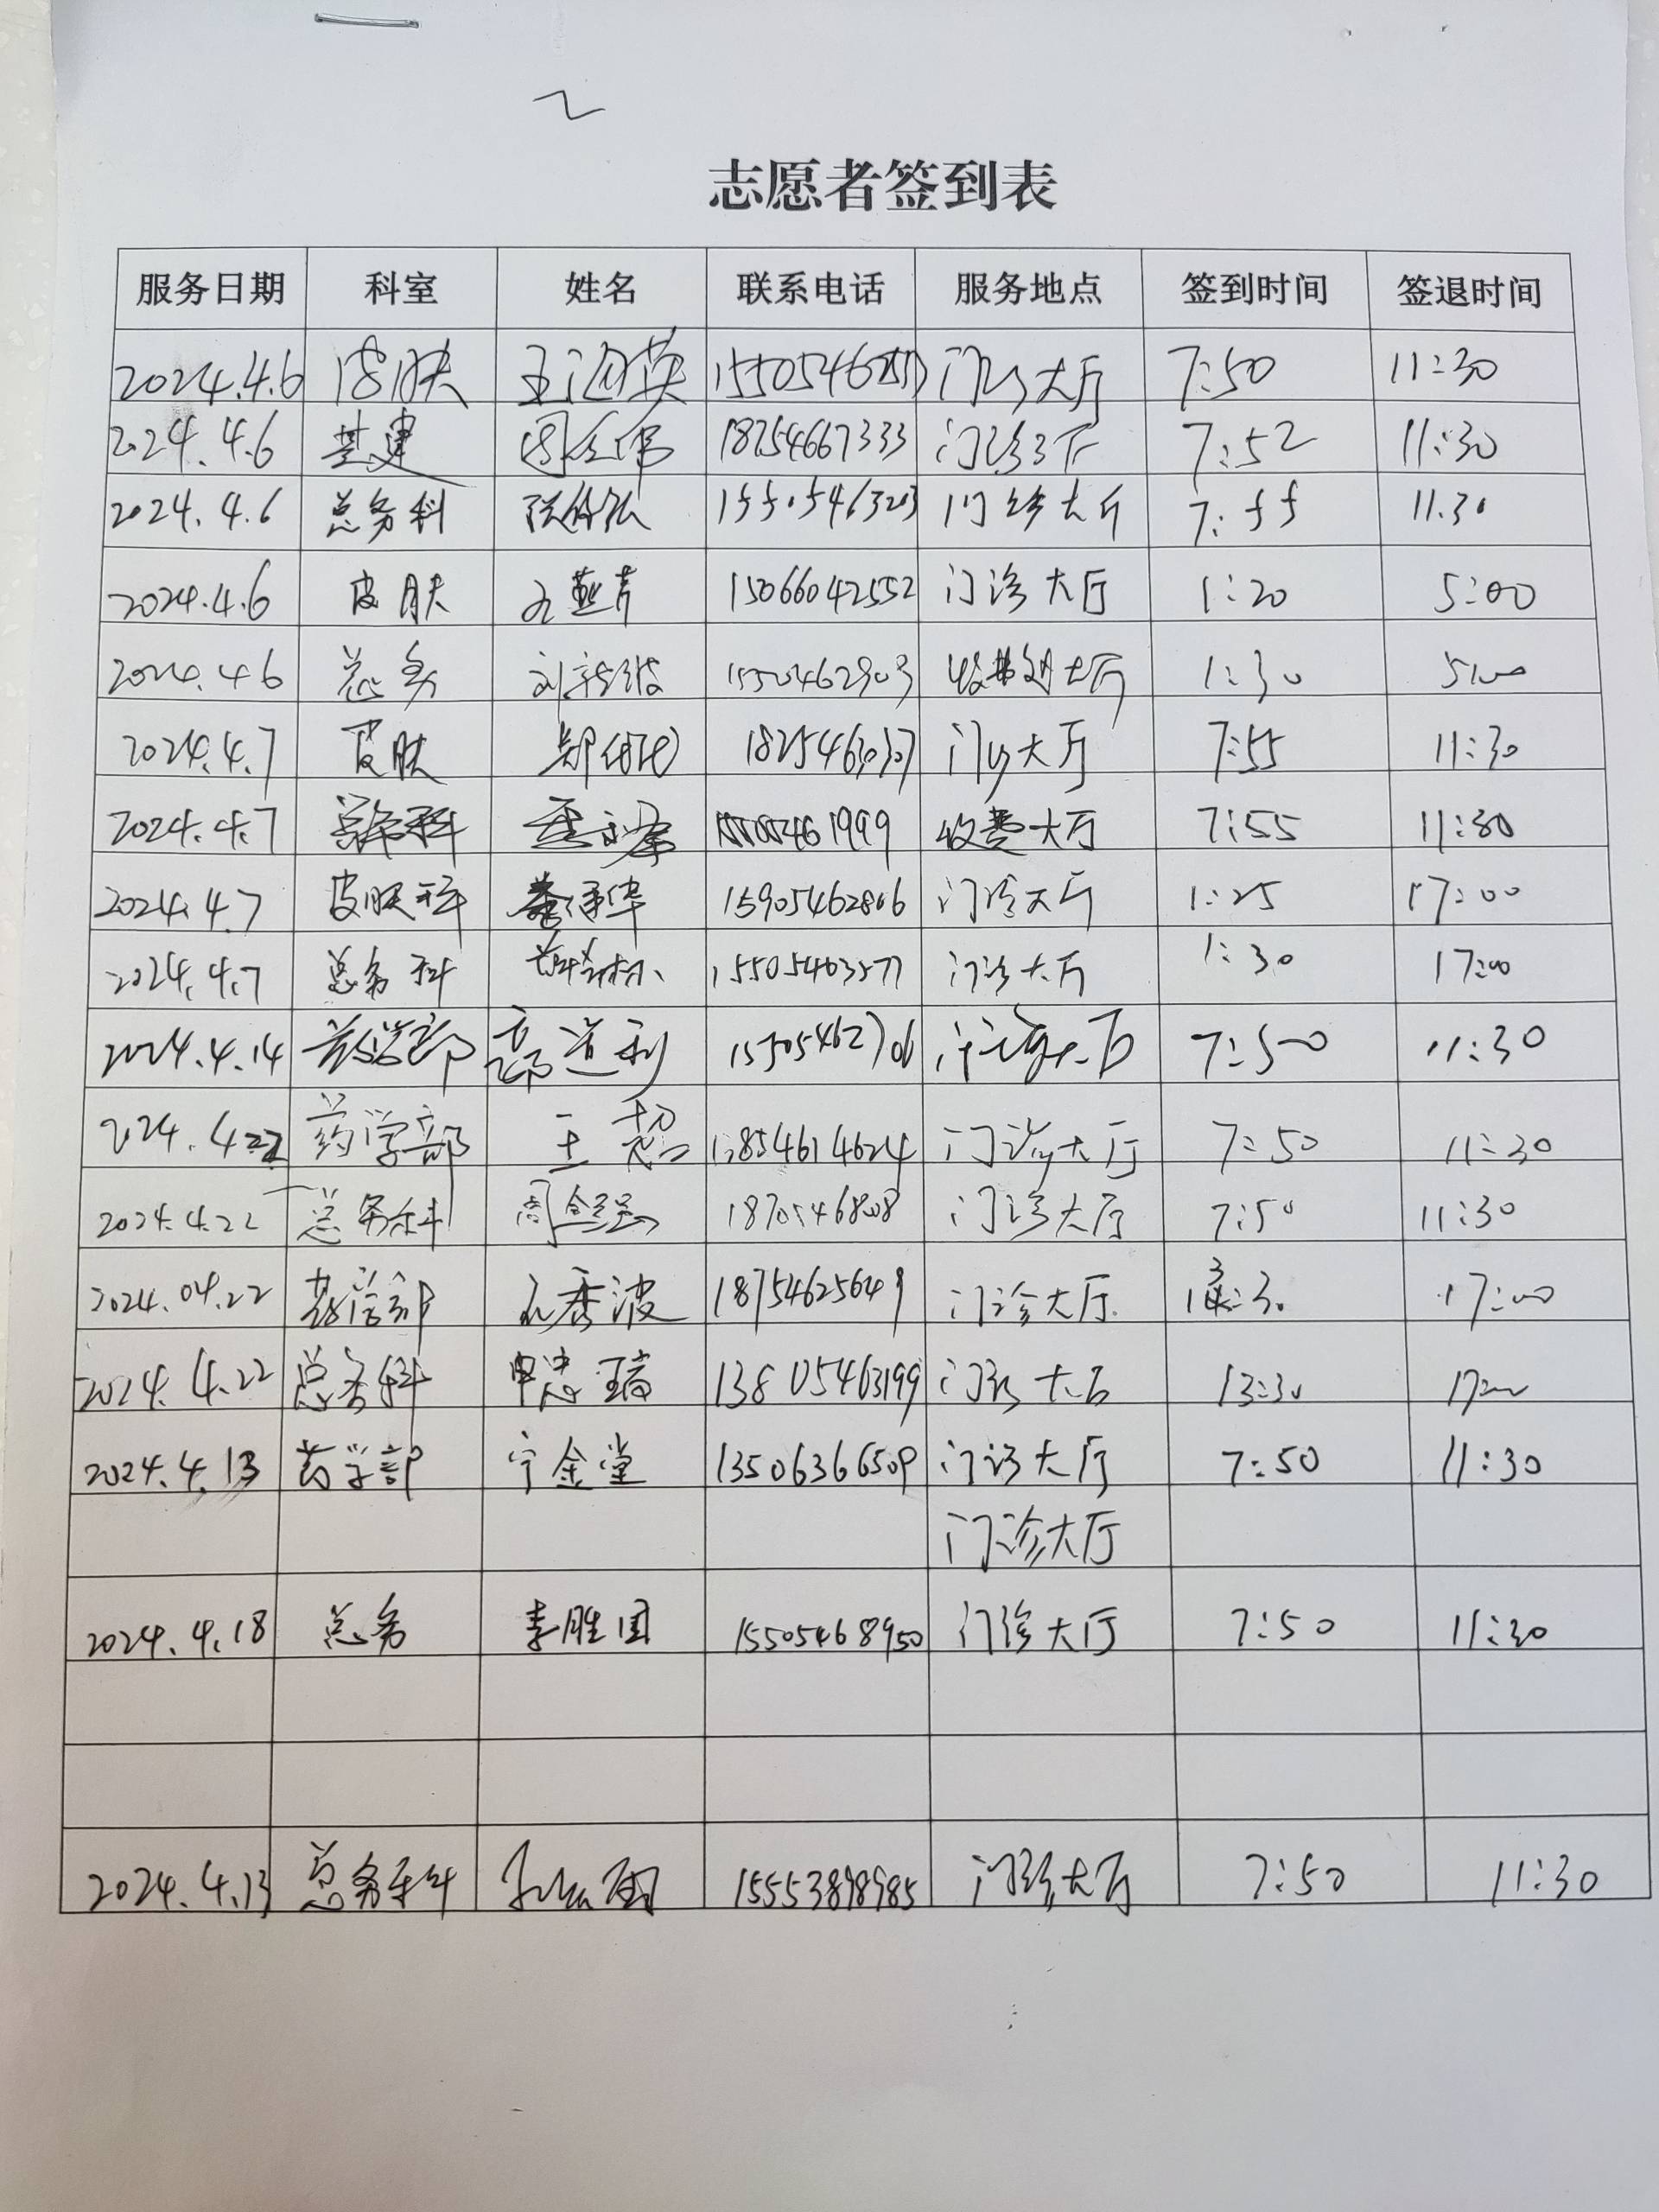 2
志愿者签到表
服务日期 科室 姓名 联系电话 服务地点 签到时间 签退时间
2024.4.6 皮肤 门诊大厅 7:50 11:30
2024.4.6 基建 18254667333 7:52 11:30
2024.4.6 总务科 15505463203 门诊大厅 7:55 11:30
2024.4.6 皮肤 孔燕青 15066042552 门诊大厅 1:20 5:00
2024.4.6 总务 15505462903 大厅 1:30 5:00
2024.4.7 皮肤 门诊大厅 7:55 11:30
2024.4.7 总务科 15505461999 收费大厅 7:55 11:30
2024.4.7 皮肤科 15905462806 门诊大厅 1:25 17:00
2024.4.7 总务科 15505463577 门诊大厅 1:30 17:00
2024.4.14 药学部 高道利 15505462706 门诊大厅 7:50 11:30
2024.4.22 药学部 王超 门诊大厅 7:50 11:30
2024.4.22 总务科 周金强 门诊大厅 7:50 11:30
2024.04.22 药学部 孔秀波 18754625649 门诊大厅 13:30 17:00
2024.4.22 总务科 申忠瑞 13805463199 门诊大厅 13:30 17:00
2024.4.13 药学部 宁金堂 13506366509 门诊大厅 7:50 11:30
门诊大厅
2024.4.18 总务 李胜国 15505468950 门诊大厅 7:50 11:30
2024.4.13 总务科 15553898985 门诊大厅 7:50 11:30